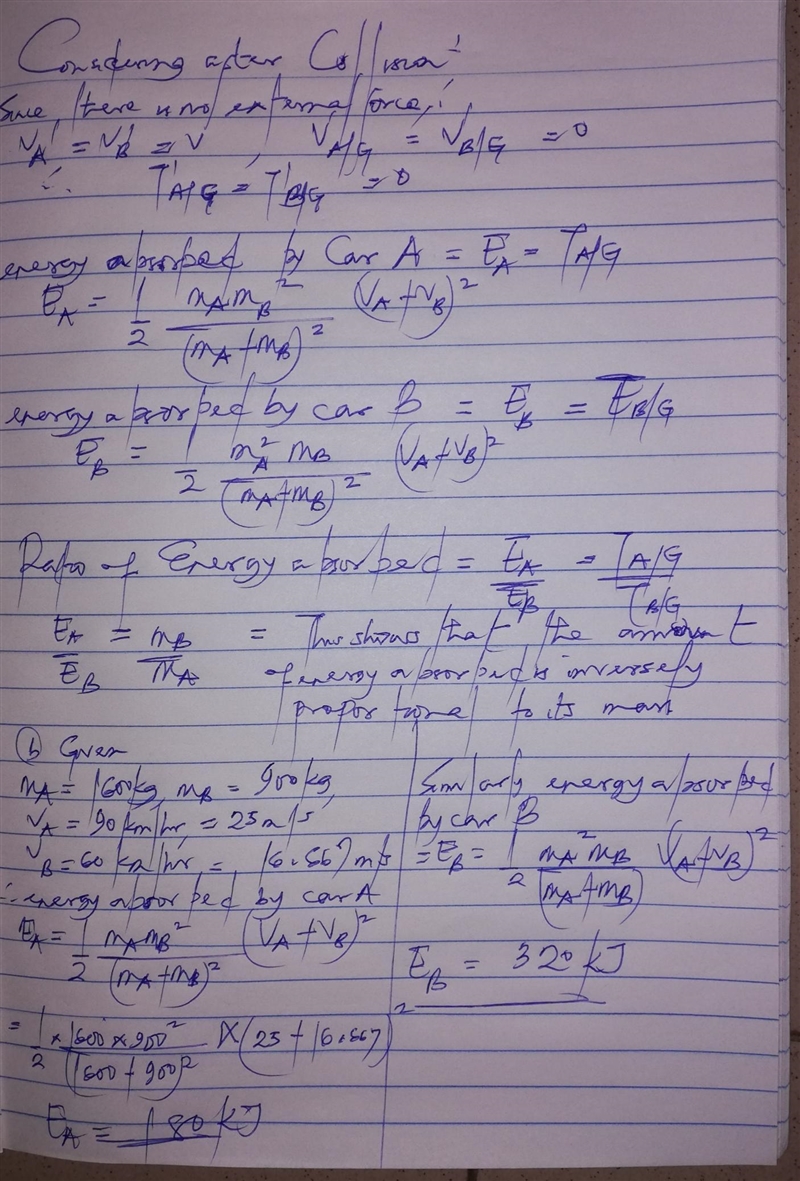 Considering after Collision:
Since, there is no external force,
V_A' = V_B' = V , V'_A/G = V'_B/G = 0
∴ T'_A/G = T'_B/G = 0
energy absorbed by Car A = E_A = T_A/G
E_A = 1/2 m_A m_B^2 / (m_A + m_B)^2 (V_A + V_B)^2
energy absorbed by car B = E_B = T_B/G
E_B = 1/2 m_A^2 m_B / (m_A + m_B)^2 (V_A + V_B)^2
Ratio of Energy absorbed = E_A / E_B = T_A/G / T_B/G
E_A / E_B = m_B / m_A = This shows that the amount
of energy absorbed is inversely
proportional to its mass
(b) Given
m_A = 1600kg, m_B = 900kg,
V_A = 90 km/hr, = 25 m/s
V_B = 60 km/hr = 16.667 m/s
∴ energy absorbed by car A
E_A = 1/2 m_A m_B^2 / (m_A + m_B)^2 (V_A + V_B)^2
= 1/2 × 1600 × 900^2 / (1600 + 900)^2 × (25 + 16.667)^2
E_A = 180 kJ
Similarly energy absorbed
by car B
= E_B = 1/2 m_A^2 m_B / (m_A + m_B) (V_A + V_B)^2
E_B = 320 kJ